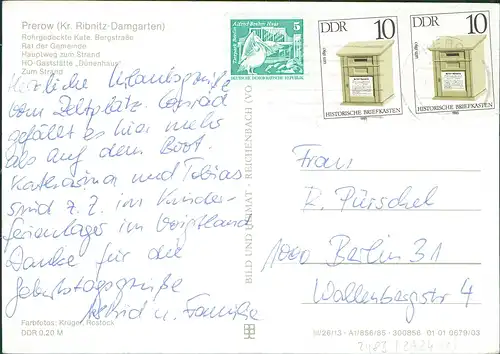 Prerow (Kr. Ribnitz-Damgarten)
Rohrgedeckte Kate, Bergstraße
Rat der Gemeinde
Hauptweg zum Strand
HO-Gaststätte „Dünenhaus"
Zum Strand
Herzliche Urlaubsgrüße
vom Zeltplatz.
gefällt es hier mehr
als auf dem Boot.
Katharina und Tobias
sind z. Z. im Kinder-
ferienlager im Voigtland
Danke für die
Geburtstagsgrüße
Astrid u. Familie
Farbfotos: Krüger, Rostock
DDR 0,20 M
BILD UND HEIMAT · REICHENBACH (VO
Alfred Brehm Haus
5
Tierpark Berlin
DEUTSCHE DEMOKRATISCHE REPUBLIK
DDR 10
HISTORISCHE BRIEFKASTEN
1985
DDR 10
HISTORISCHE BRIEFKASTEN
1985
Frau
R. Pürschel
1000 Berlin 31
Wallenbergstr 4
W/26/13 · A1/856/85 · 300856 01 01 0679/03